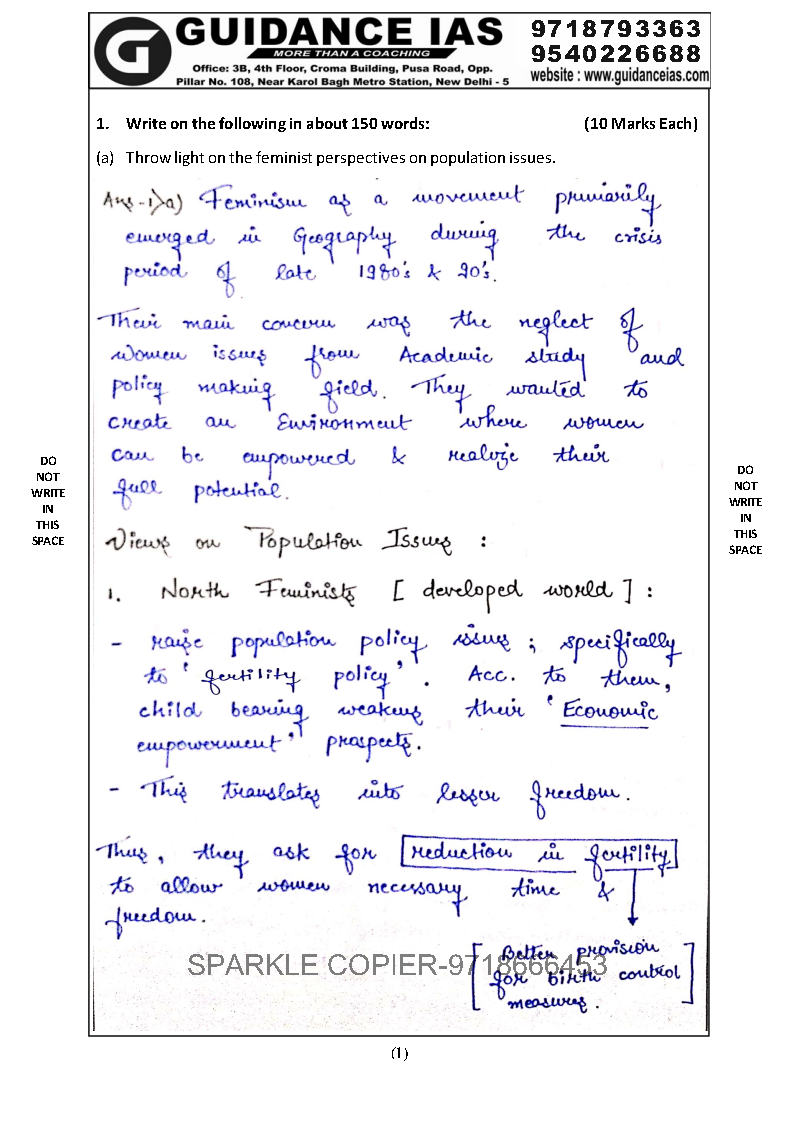 GUIDANCE IAS
MORE THAN A COACHING
Office: 3B, 4th Floor, Croma Building, Pusa Road, Opp.
Pillar No. 108, Near Karol Bagh Metro Station, New Delhi - 5
9718793363
9540226688
website : www.guidanceias.com
1. Write on the following in about 150 words: (10 Marks Each)
(a) Throw light on the feminist perspectives on population issues.
Ans-1>a) Feminism as a movement primarily
emerged in Geography during the crisis
period of late 1980's & 90's.
Their main concern was the neglect of
women issues from Academic study and
policy making field. They wanted to
create an Environment where women
can be empowered & realize their
full potential.
Views on Population Issues :
1. North Feminists [ developed world ] :
- raise population policy issues ; specifically
to 'fertility policy'. Acc. to them,
child bearing weakens their 'Economic
empowerment' prospects.
- This translates into lesser freedom.
Thus, they ask for reduction in fertility
to allow women necessary time &
freedom.
[ Better provision
for birth control
measures. ]
SPARKLE COPIER-9718666453
DO
NOT
WRITE
IN
THIS
SPACE
DO
NOT
WRITE
IN
THIS
SPACE
(1)